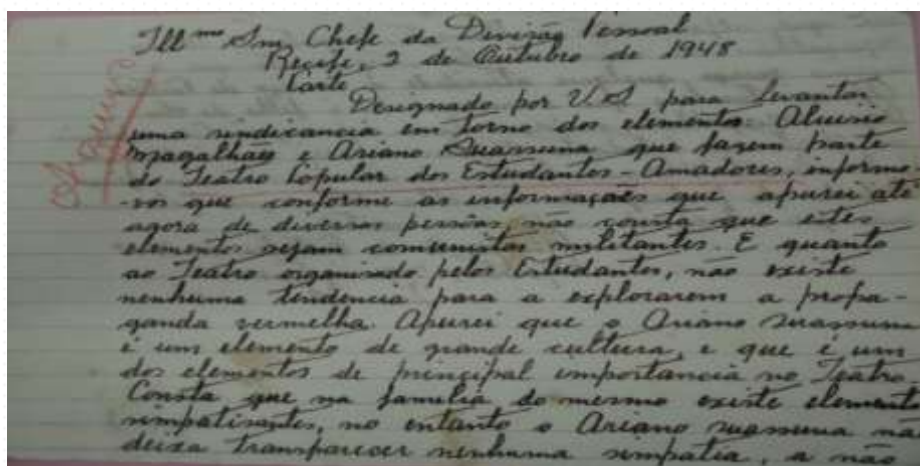 Illmo Snr. Chefe da Devisão Pessoal
Recife, 2 de Outubro de 1948
Carte
Designado por V.S para levantar
uma sindicancia em torno dos elementos: Aluisio
Magalhães e Ariano Suassuna que fazem parte
do Teatro Popular dos Estudantes-Amadores, informo-
-vos que conforme as informações que apurei até
agora de diversas pessôas, não consta que estes
elementos sejam comunistas militantes. E quanto
ao Teatro organisado pelos Estudantes, não existe
nenhuma tendencia para a explorarem a propa-
ganda vermelha. Apurei que o Ariano Suassuna
é um elemento de grande cultura, e que é um
dos elementos de principal importancia no Teatro.
Consta que na familia do mesmo existe elementos
simpatisantes, no entanto o Ariano Suassuna não
deixa transparecer nenhuma simpatia, a não